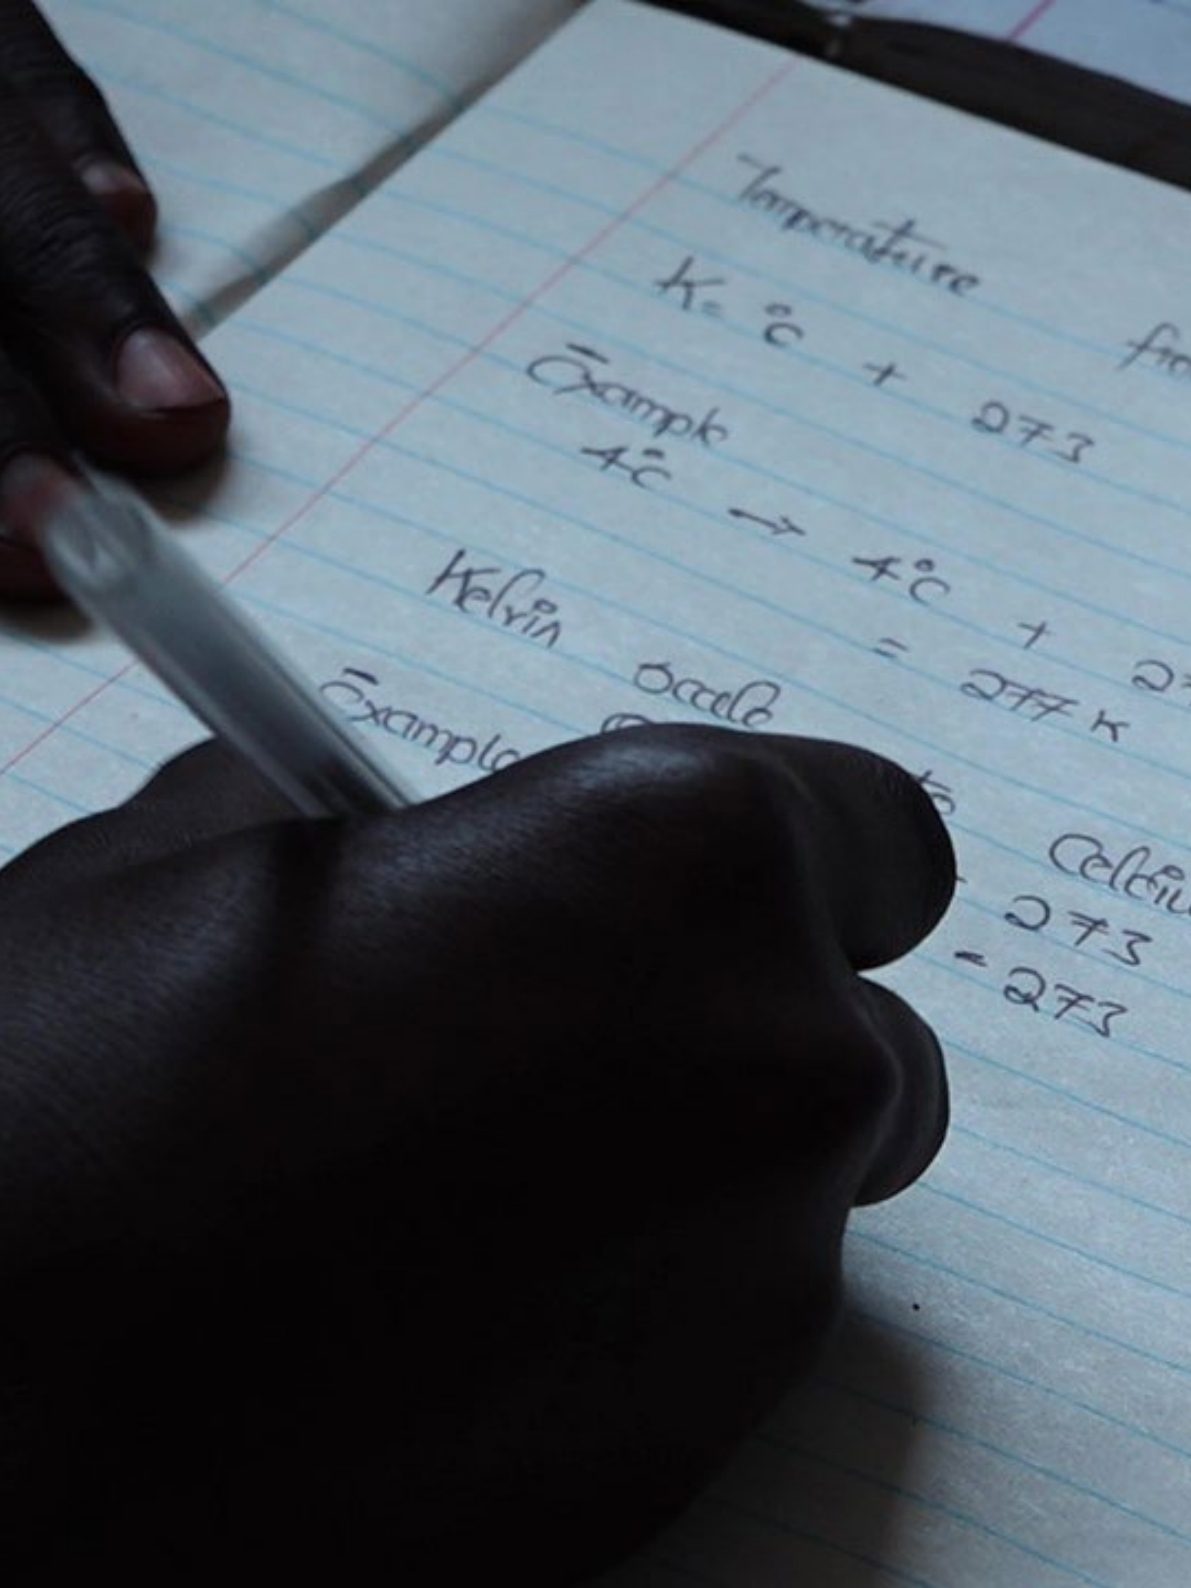 Temperature
K= °C + 273
Example
4°C → 4°C +
= 277 K
Kelvin scale to
Example
273
= 273